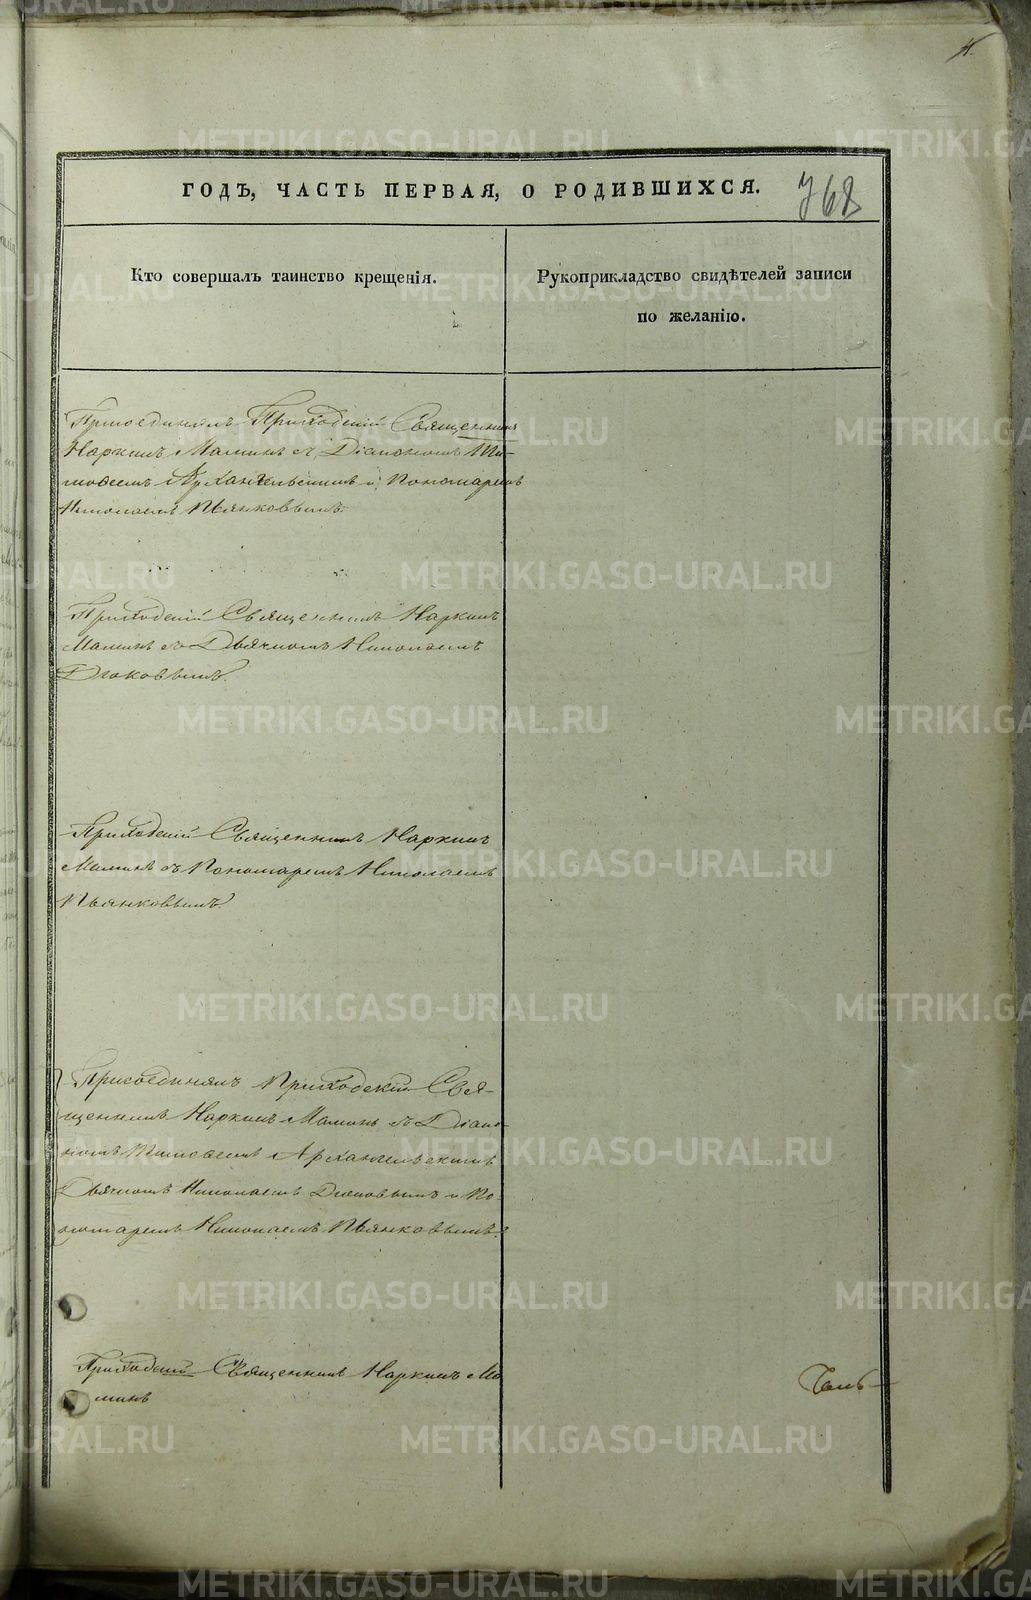 4.
ГОДЪ, ЧАСТЬ ПЕРВАЯ, О РОДИВШИХСЯ.
768
Кто совершалъ таинство крещенія.
Рукоприкладство свидѣтелей записи
по желанію.
Присоединялъ Приходскій Священникъ
Наркисъ Маминъ съ Діакономъ Ти-
моѳеемъ Архангельскимъ и Пономаремъ
Николаемъ Пьянковымъ.
Приходскій Священникъ Наркисъ
Маминъ съ Дьячкомъ Николаемъ
Дюковымъ.
Приходскій Священникъ Наркисъ
Маминъ съ Пономаремъ Николаемъ
Пьянковымъ.
Присоединялъ Приходскій Свя-
щенникъ Наркисъ Маминъ съ Діако-
номъ Тимоѳеемъ Архангельскимъ
Дьячкомъ Николаемъ Дюковымъ и По
номаремъ Николаемъ Пьянковымъ.
Приходскій Священникъ Наркисъ Ма
минъ
METRIKI.GASO-URAL.RU